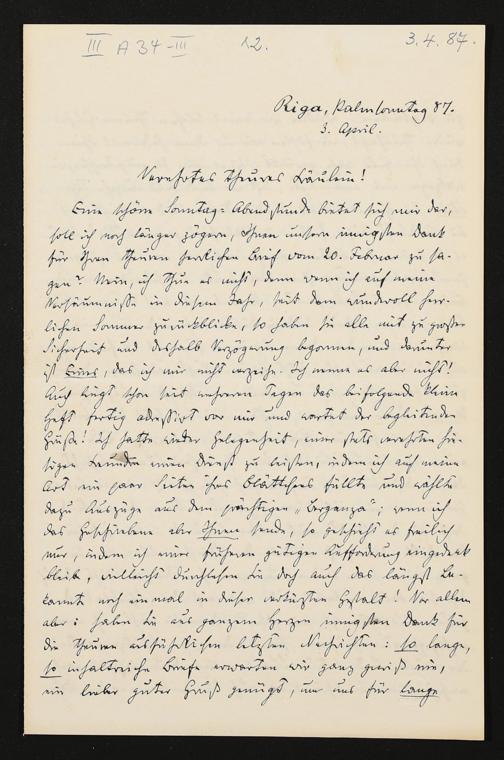 III A 34-III 12. 3.4.87.
Riga, Palmsonntag 87.
3. April.
Verehrtes theures Fräulein!
Eine schöne Sonntag-Abendstunde bietet sich mir dar,
soll ich noch länger zögern, Ihnen unsern innigsten Dank
für Ihren theuren herrlichen Brief vom 20. Februar zu sa-
gen? Nein, ich thue es nicht, denn wenn ich auf meine
Versäumnisse in diesem Jahr, seit dem wundervoll herr-
lichen Sommer zurückblicke, so haben sie alle mit zu großer
Sicherheit und deshalb Verzögerung begonnen, und darunter
ist Eines, das ich mir nicht verzeihe. Ich nenne es aber nicht!
Auch liegt schon seit mehreren Tagen das beifolgende kleine
Heft fertig adressirt vor mir und wartet der begleitenden
Grüße! Ich hatte wieder Gelegenheit, einer stets verehrten hie-
sigen Freundin einen Dienst zu leisten, indem ich auf meine
Art ein paar Seiten ihres Blättchens füllte und wählte
dazu Auszüge aus dem prächtigen „Berganza“; wenn ich
das Geschriebene aber Ihnen sende, so geschieht es freilich
nur, indem ich einer früheren gütigen Aufforderung eingedenk
bleibe, vielleicht durchlesen Sie doch auch das längst Be-
kannte noch einmal in dieser verkürzten Gestalt! Vor allem
aber: haben Sie aus ganzem Herzen innigsten Dank für
die theuren ausführlichen letzten Nachrichten: so lange,
so inhaltreiche Briefe erwarten wir ganz gewiß nie,
ein lieber guter Gruß genügt, um uns für lange